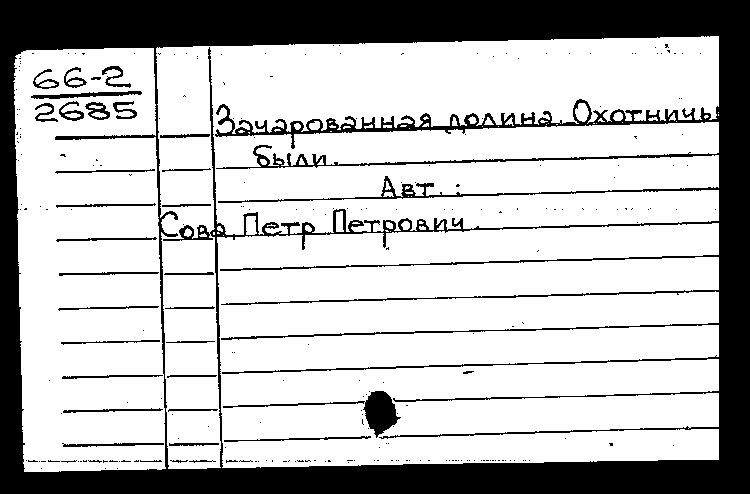 66-2
2685
Зачарованная долина. Охотничьи
были.
Авт.:
Сова, Петр Петрович.